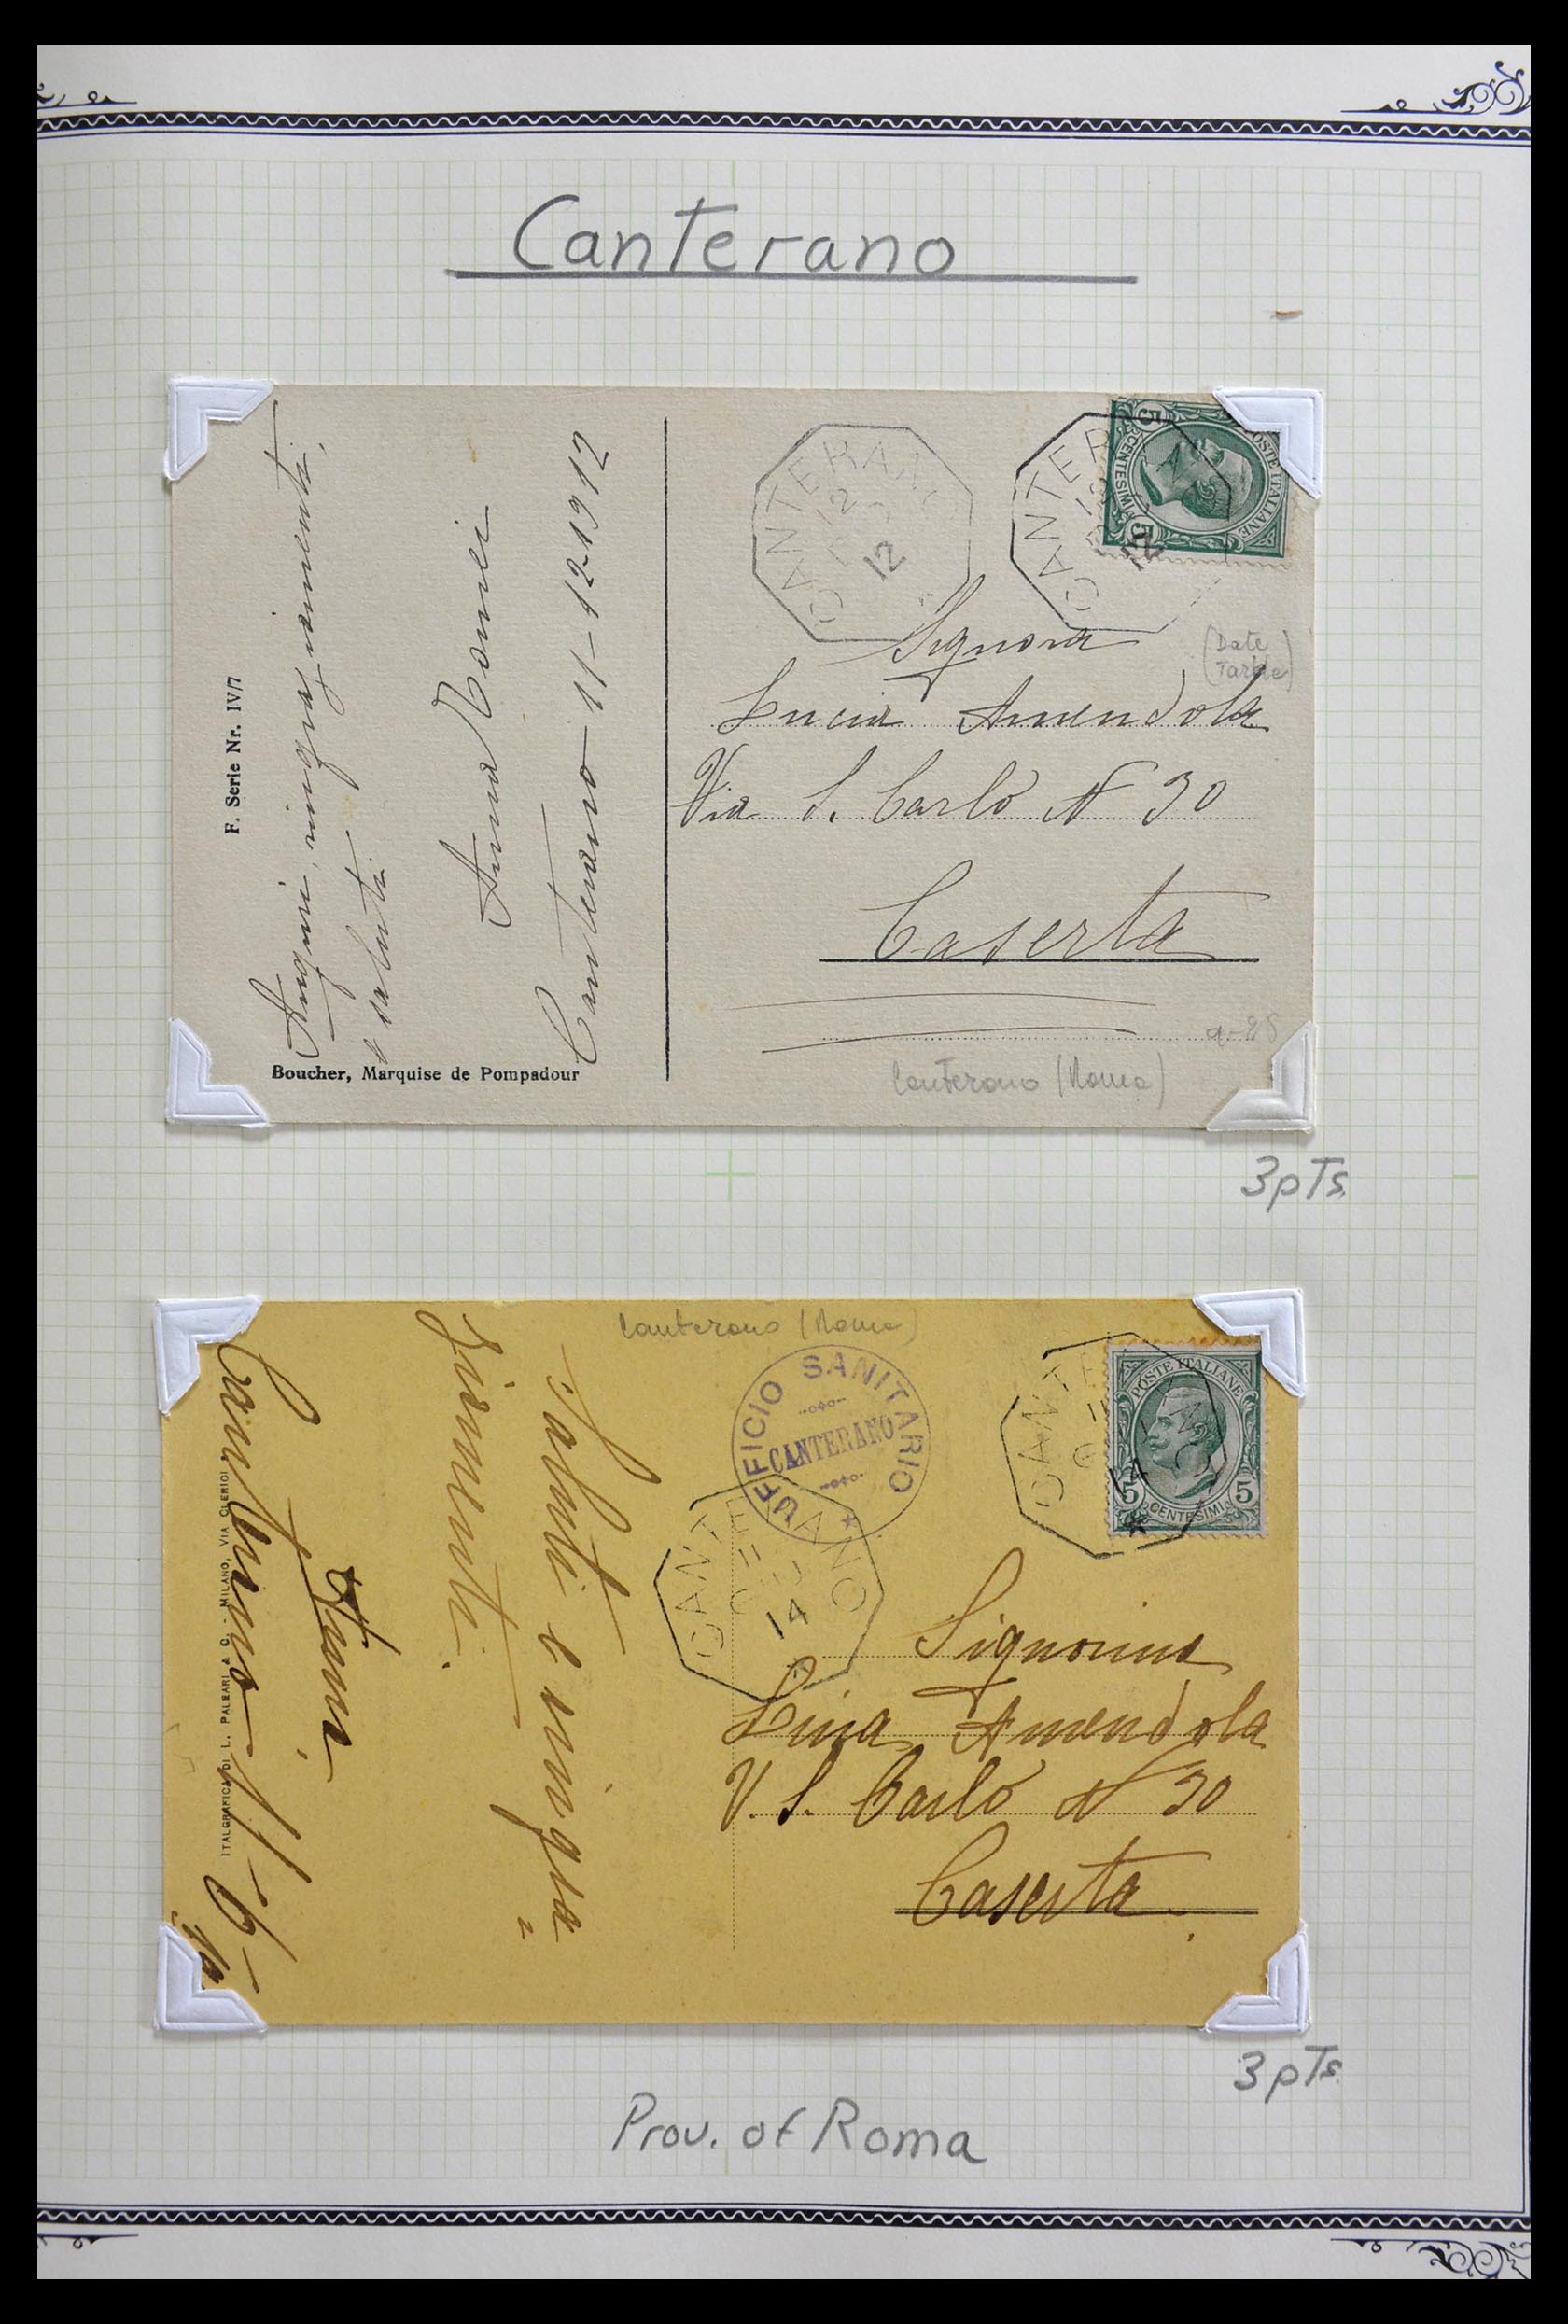 Canterano
F. Serie Nr. IV/7
Auguri, ringraziamenti,
e saluti
Anna Romei
Canterano 11-12-1912
Boucher, Marquise de Pompadour
CANTERANO
12
12
CANTER
12
12
POSTE ITALIANE
5 CENTESIMI 5
(Date
Tarde)
Signora
Lucia Amendola
Via S. Carlo N 30
Caserta
9-25
Canterano (Roma)
3pTs
Canterano (Roma)
UFFICIO SANITARIO
CANTERANO
CANTERANO
14
CANTE
14
POSTE ITALIANE
5 CENTESIMI 5
Saluti e ringra„
ziamenti.
Canterano 11-6-
ITALGRAFICA DI L. PALEARI & C. - MILANO, VIA CLERICI
Signorina
Lina Amendola
V. S. Carlo N 30
Caserta
3pTs
Prov. of Roma